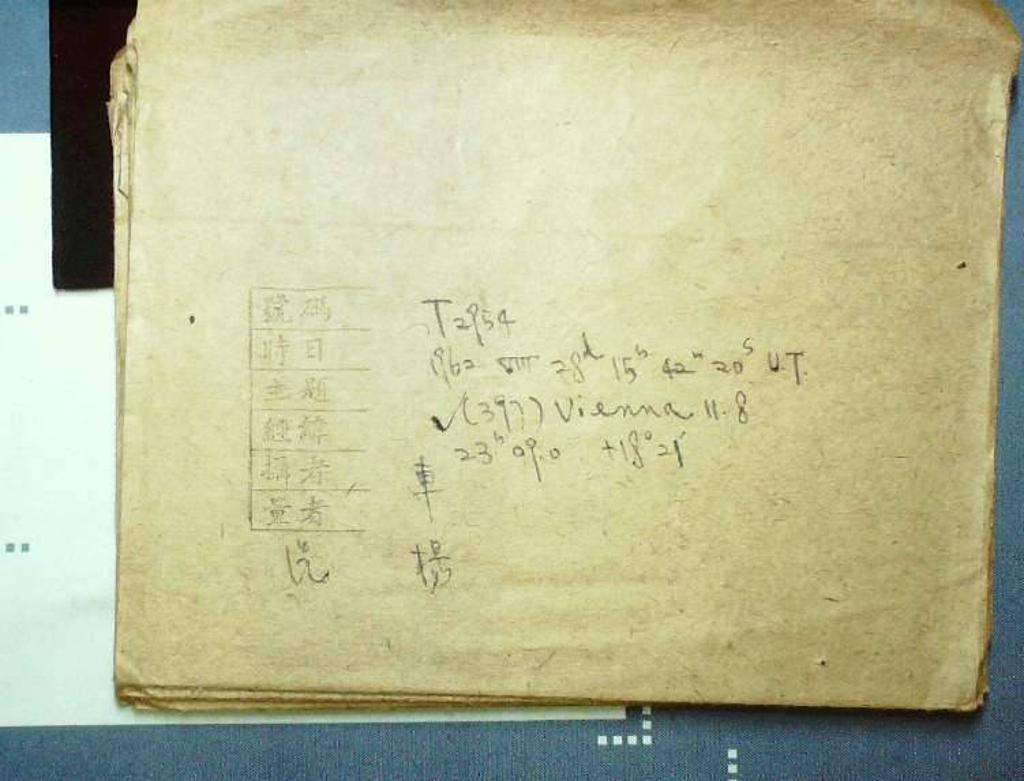 號碼 T2954
時日 1962 VIII 28d 15h 42m 20s U.T.
主題 √(397) Vienna 11.8
經緯 23h 09.0 +18°21'
攝者 車
量者
洗 楊